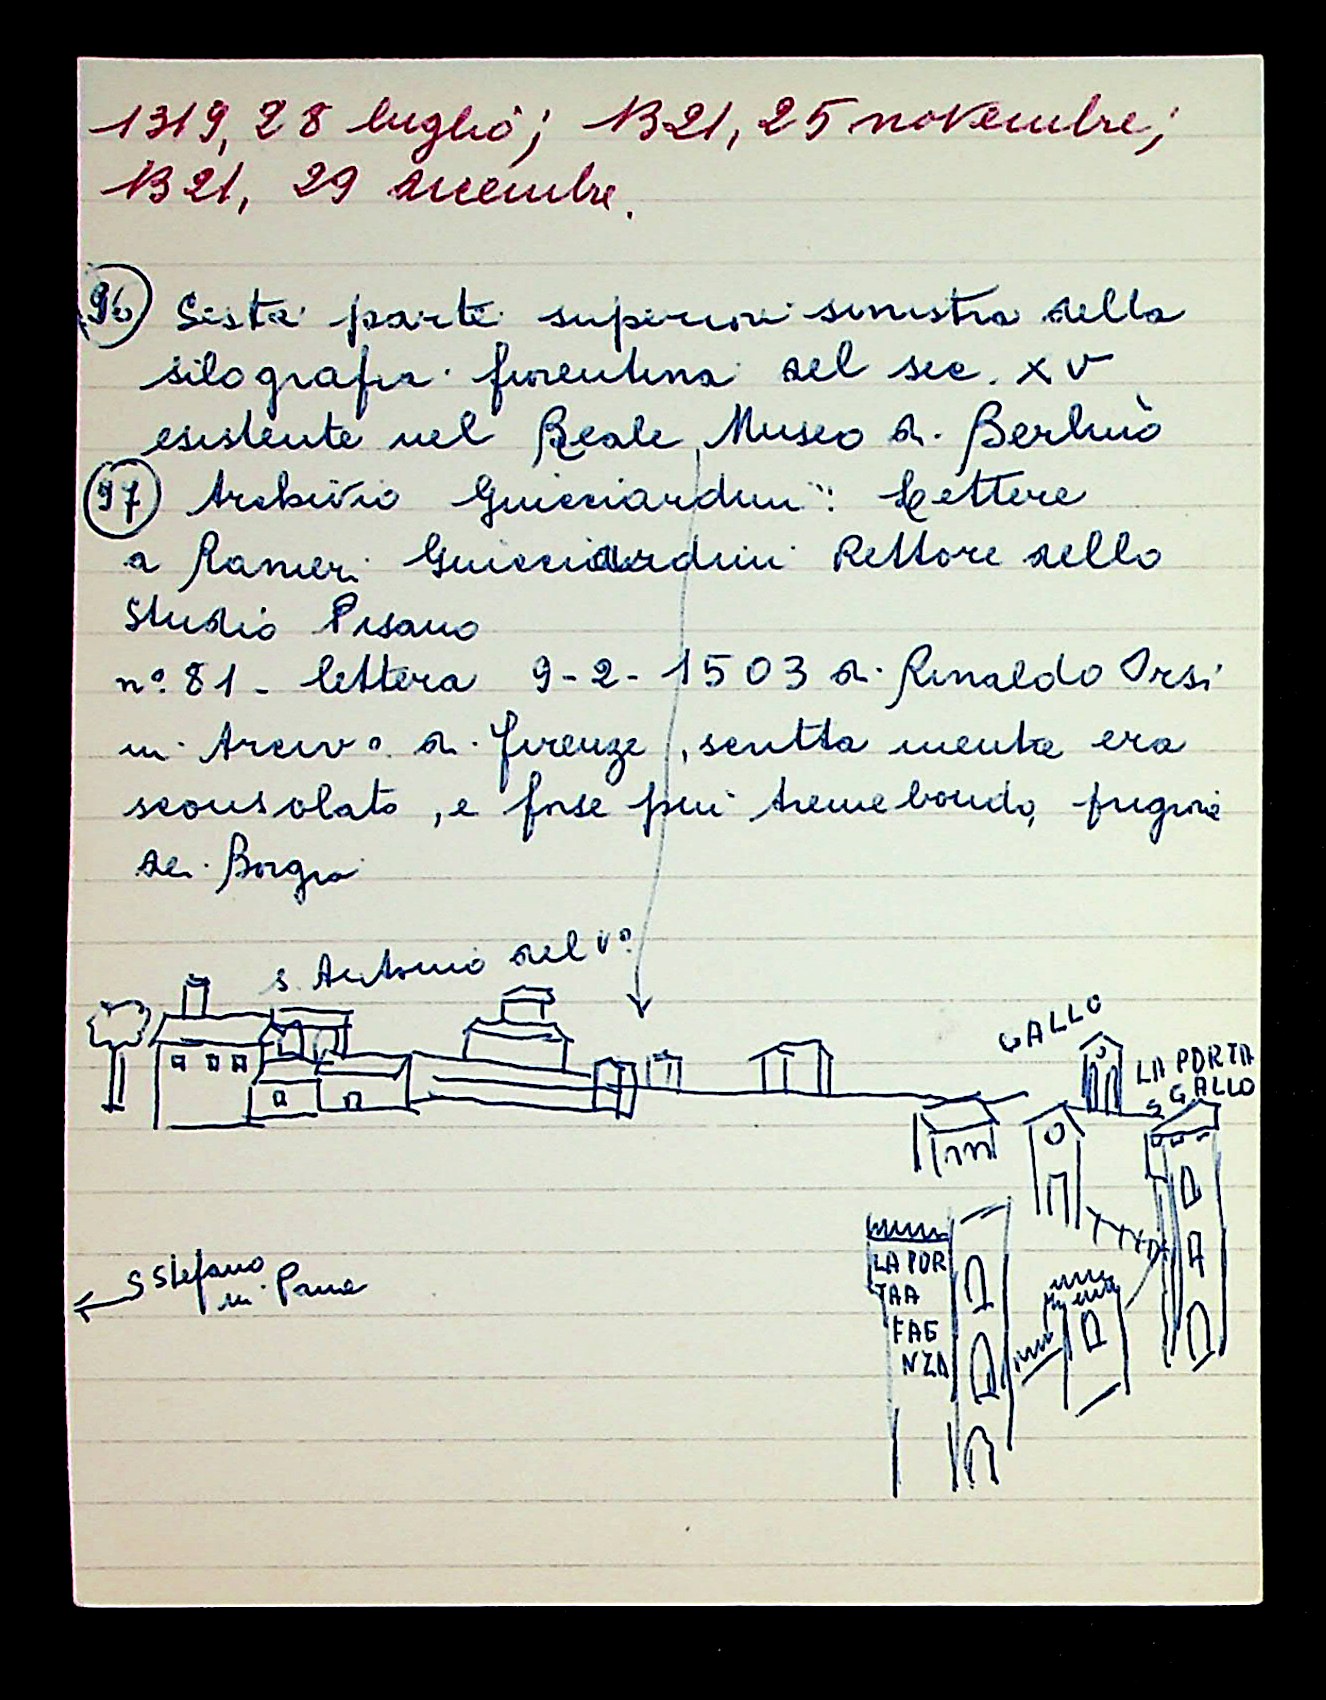 1319, 28 luglio; 1321, 25 novembre;
1321, 29 dicembre.
96 Sesta parte superiore sinistra della
silografia fiorentina del sec. XV
esistente nel Reale Museo di Berlino
97 Archivio Guicciardini: Lettere
a Ranieri Guicciardini Rettore dello
Studio Pisano
n°. 81 - lettera 9-2-1503 di Rinaldo Orsi
in Arciv° di Firenze, scritta mentre era
sconsolato, e forse più tremebondo, prigione
dei Borgia
S. Antonio del V°
GALLO
LA PORTA
S GALLO
LA POR
TA A
FAE
NZA
S Stefano
in Pane